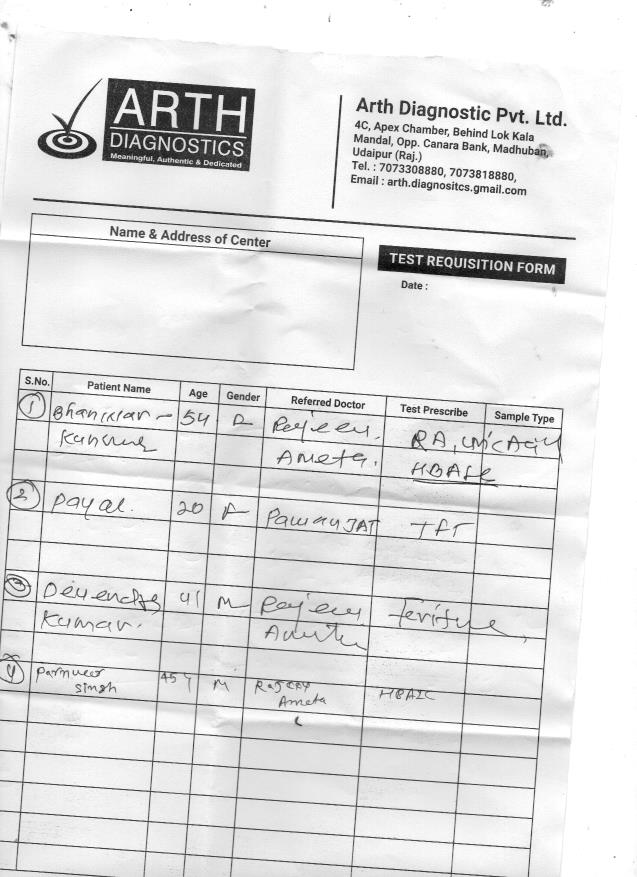 ARTH
DIAGNOSTICS
Meaningful, Authentic & Dedicated
Arth Diagnostic Pvt. Ltd.
4C, Apex Chamber, Behind Lok Kala
Mandal, Opp. Canara Bank, Madhuban,
Udaipur (Raj.)
Tel. : 7073308880, 7073818880,
Email : arth.diagnositcs.gmail.com
Name & Address of Center
TEST REQUISITION FORM
Date :
S.No. Patient Name Age Gender Referred Doctor Test Prescribe Sample Type
1 54 RA,
Ameta.
2 Payal. 20 F Pawan JAT TFT
3 41 M
Kumar.
4 Parmveer 45 Y M HBA1C
Singh Ameta